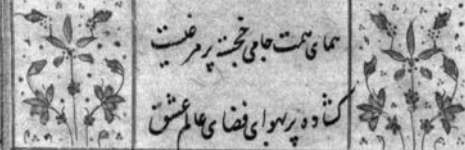 همای همت جامی خجسته پر مرغیست
گشاده پر بهوای فضای عالم عشق